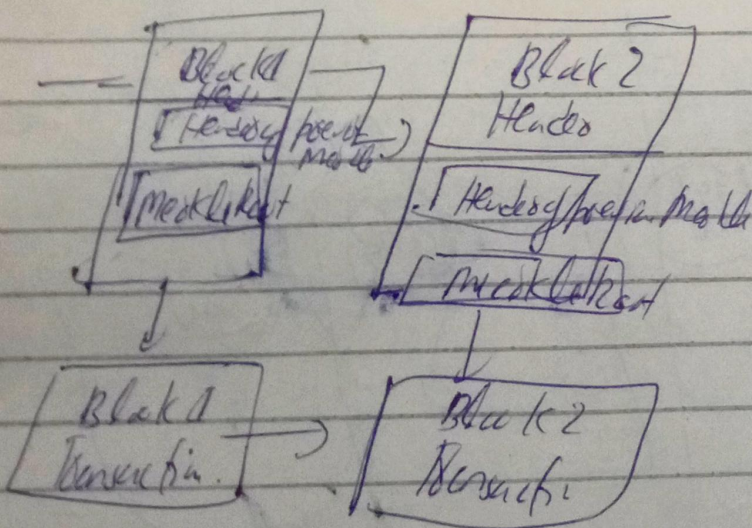 Block 1
Header
Header of previous
Merkle Root
Block 2
Header
Header of previous
Merkle Root
Block 1
Transaction.
Block 2
Transaction